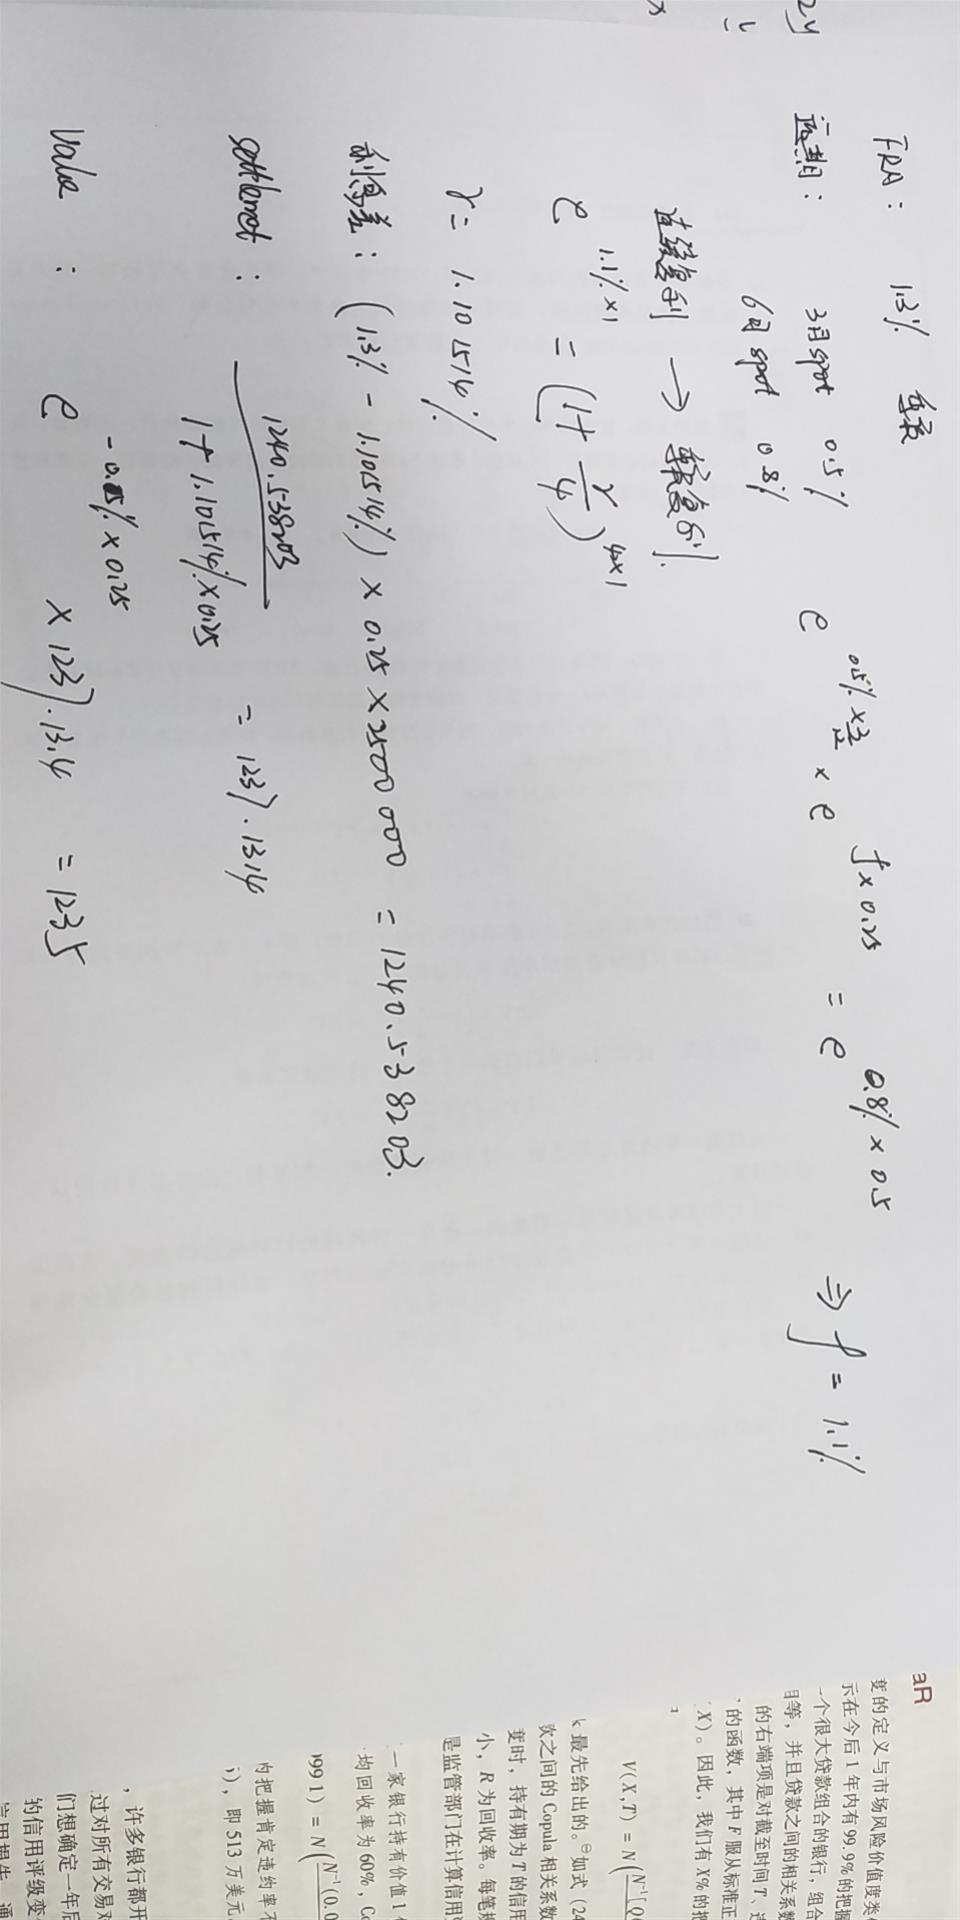 FRA: 1.3% 季度
远期: 3月spot 0.5% e^{0.5%×3/12} × e^{f×0.25} = e^{0.8%×0.5} ⇒ f = 1.1%
6月spot 0.8%
连续复利 → 季度复利.
e^{1.1%×1} = (1+ r/4)^{4×1}
r = 1.101514%
利息差: (1.3% - 1.101514%) × 0.25 × 2500 000 = 1240.538203.
settlemet: 1240.538203 / 1+1.101514%×0.25 = 1237.1314
Value: e^{-0.5%×0.25} × 1237.1314 = 1235
aR
示在今后1年内有99.9%的把握
一个很大贷款组合的银行,组合
等,并且贷款之间的相关系数
的右端项是对截至时间T、
的函数,其中F服从标准正
X)。因此,我们有X%的把
V(X,T) = N(
最先给出的。如式(24
欢之间的Copula相关系数
变时,持有期为T的信用
小,R为回收率。每笔
是监管部门在计算信用
一家银行持有价值1
均回收率为60%,Co
9991) = N(N⁻¹(0.0
的把握肯定违约率不
),即513万美元
,许多银行都开
过对所有交易对
们想确定一年后
的信用评级变